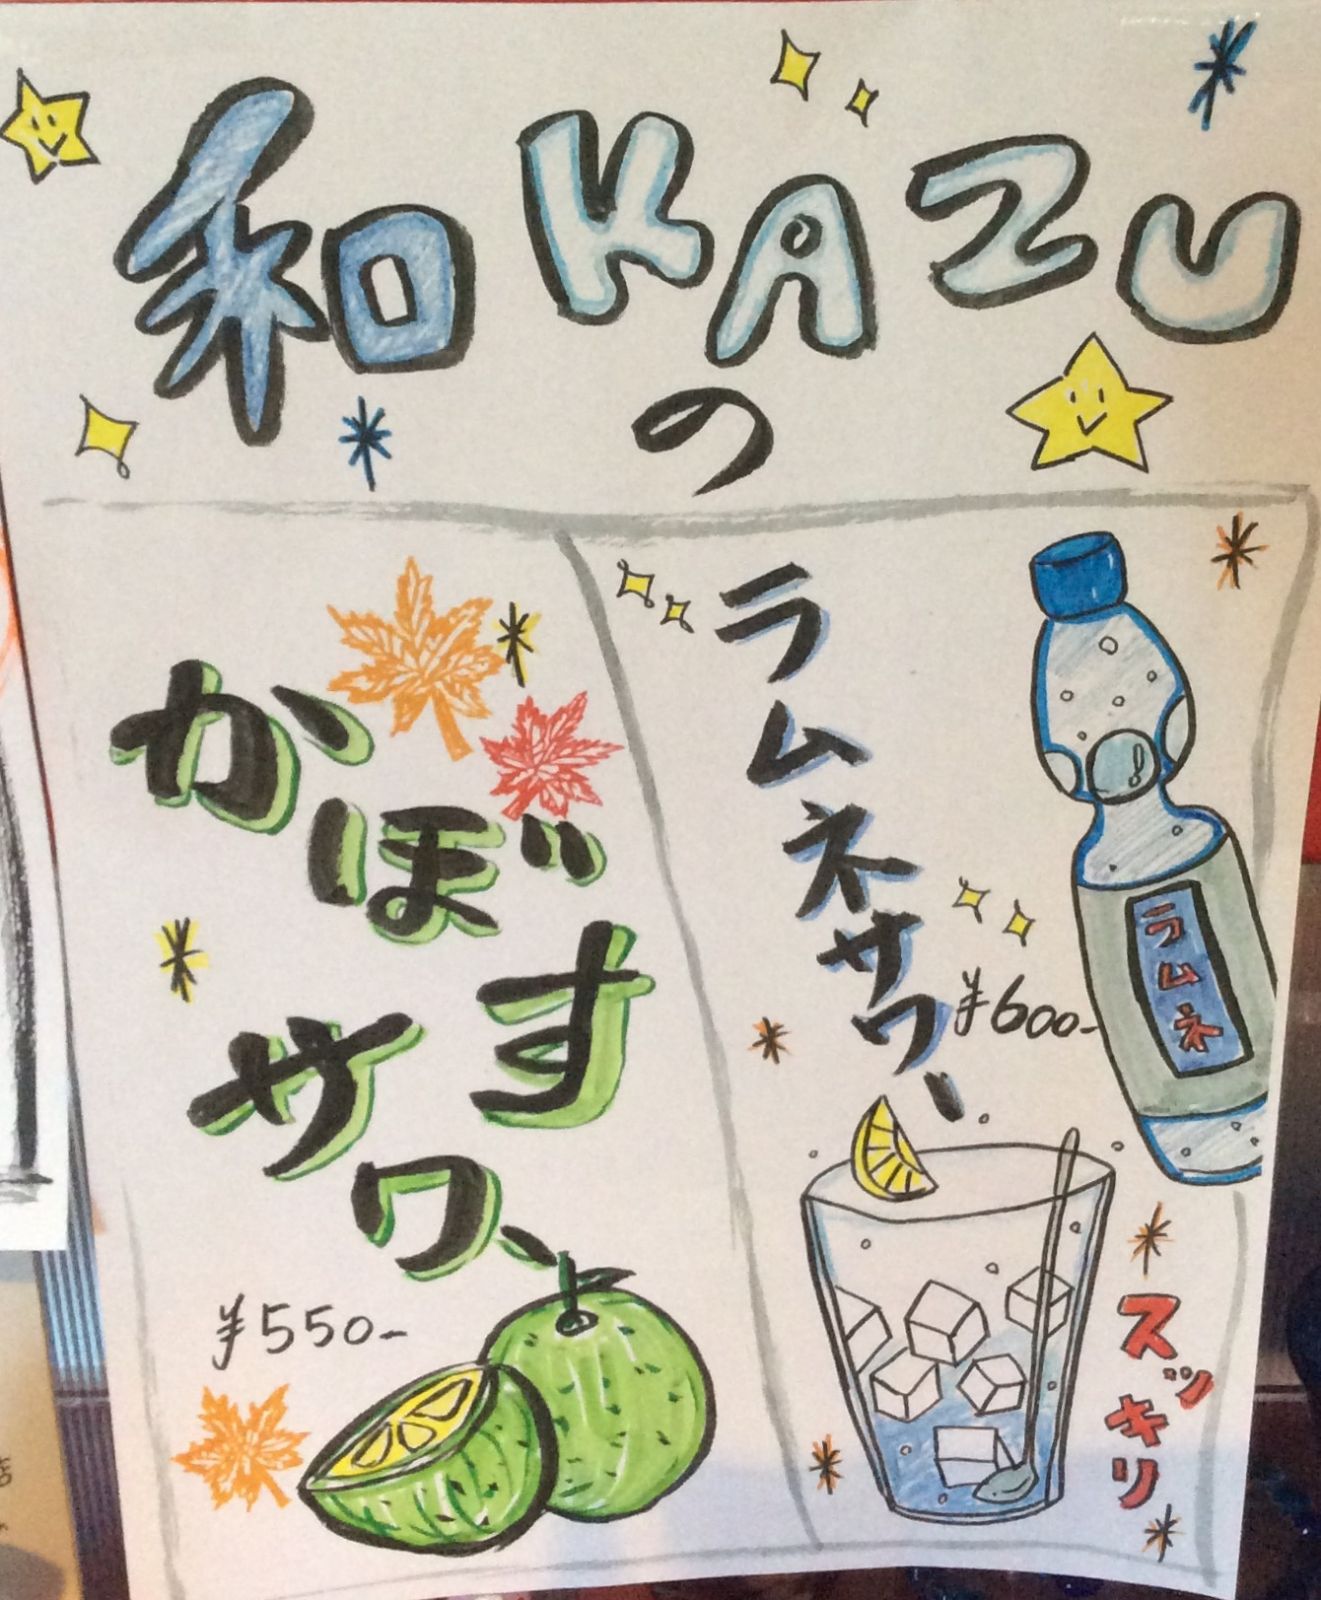 和 KAZU
の
かぼす
サワー
¥550-
ラムネサワー
¥600-
ラムネ
スッキリ